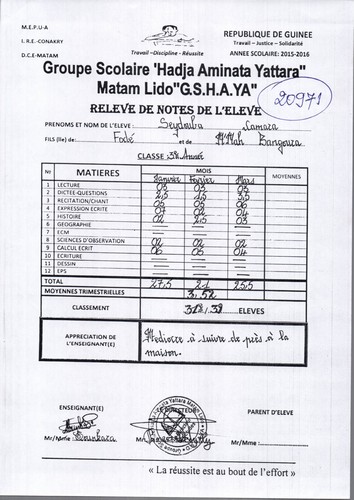 M.E.P.U-A
REPUBLIQUE DE GUINEE
I.R.E.-CONAKRY
Travail – Justice – Solidarité
D.C.E-MATAM
Travail –Discipline - Réussite
ANNEE SCOLAIRE: 2015-2016
Groupe Scolaire 'Hadja Aminata Yattara"
Matam Lido"G.S.H.A.YA"
20971
RELEVE DE NOTES DE L'ELEVE
PRENOMS ET NOM DE L'ELEVE : Camara
FILS (lle) de: Fodé et de M'Mah Bangoura
CLASSE :
N° MATIERES MOIS MOYENNES
Janvier Fevrier Mars
1 LECTURE 03 03
2 DICTEE-QUESTIONS 2,5 1,5 3,5
3 RECITATION/CHANT 05 05 06
4 EXPRESSION ECRITE 07 02 04
5 HISTOIRE 02 2,5
6 GEOGRAPHIE — — —
7 ECM — — —
8 SCIENCES D'OBSERVATION 02 02 02
9 CALCUL ECRIT 06 05 04
10 ECRITURE — — —
11 DESSIN — — —
12 EPS — — —
TOTAL 27,5 21 25,5
MOYENNES TRIMESTRIELLES 3,52
CLASSEMENT ELEVES
APPRECIATION DE
L'ENSEIGNANT(E)
Mediocre à suivre de près à la
maison.
ENSEIGNANT(E)
PARENT D'ELEVE
Mr/Mme :
Mr/Mm:
« La réussite est au bout de l'effort »